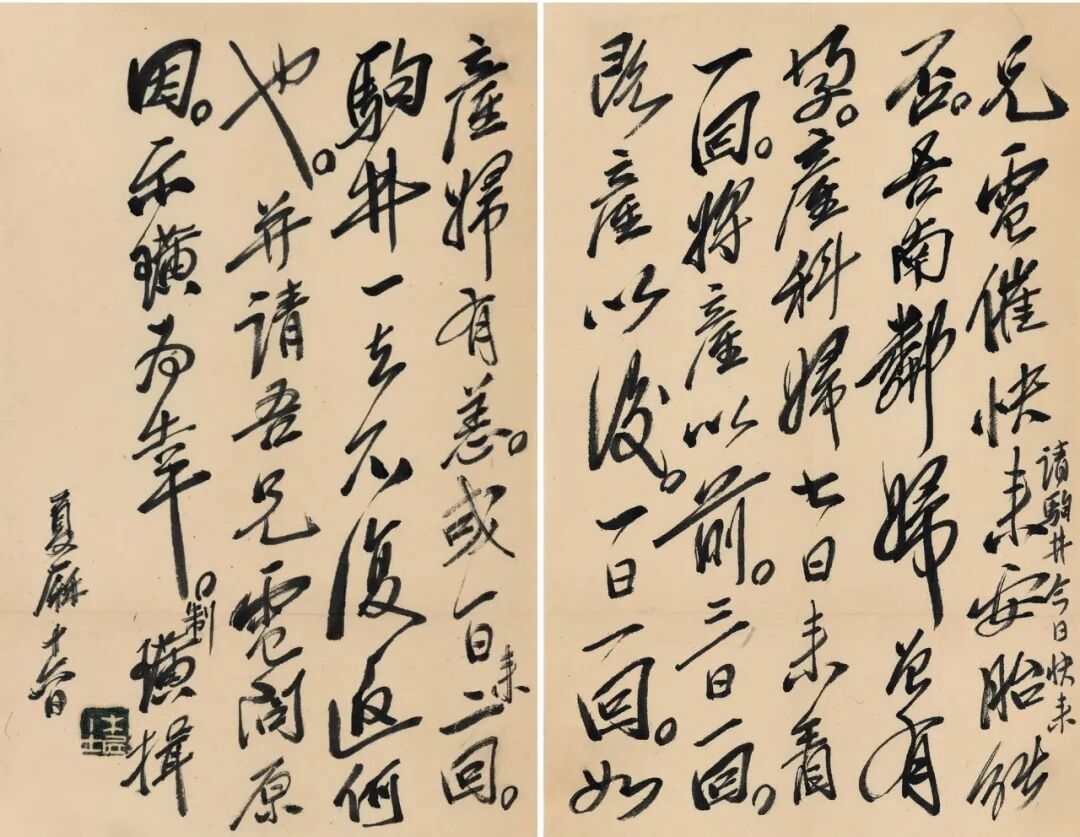 兄電催快来安胎能
請駒井今日快来
否。吾南鄰婦曾有
孕。產科婦七日来看
一回。將產以前。三日一回。
既產以後。一日一回。如
產婦有恙。或一日来二回。
駒井一去不復返何
也。并請吾兄電問原
因。示璜為幸。制璜揖
夏厤十六日
木居士